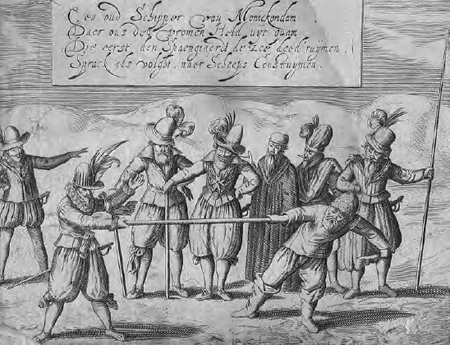 Een oud Schipper van Monickendam
Daer ons den vromen Held uyt quam
Die eerst den Spaengiaert de Zee deed ruymen,
Sprack als volght, naer Scheeps Costuymen.